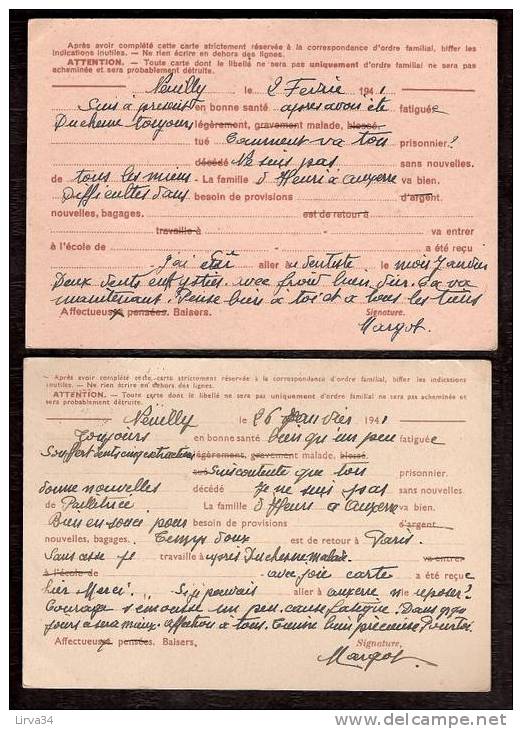 Après avoir complété cette carte strictement réservée à la correspondance d'ordre familial, biffer les
indications inutiles. — Ne rien écrire en dehors des lignes.
ATTENTION. — Toute carte dont le libellé ne sera pas uniquement d'ordre familial ne sera pas
acheminée et sera probablement détruite.
Neuilly le 2 Fevrie 1941
Suis à present en bonne santé après avoir été fatiguée
Duchesne toujours légèrement, gravement malade, blessé.
tué Comment va ton prisonnier?
décédé Ne suis pas sans nouvelles.
de tous les miens. La famille d'Henri à Auxerre va bien.
Difficultes dans besoin de provisions d'argent.
nouvelles, bagages. est de retour à
travaille à va entrer
à l'école de a été reçu
J'ai été aller à u dentiste le mois Janvier
Deux dents avec froid bien dur. ça va
maintenant. Pense bien à toi et à tous les tiens
Affectueuses pensées. Baisers. Signature.
Margot.
Après avoir complété cette carte strictement réservée à la correspondance d'ordre familial, biffer les indications
inutiles. — Ne rien écrire en dehors des lignes.
ATTENTION. — Toute carte dont le libellé ne sera pas uniquement d'ordre familial ne sera pas acheminée et
sera probablement détruite.
Neuilly le 26 Janvier 1941
Toujours en bonne santé bien qu'un peu fatiguée
Souffert dents cinq extractions légèrement, gravement malade, blessé.
tué Suis contente que ton prisonnier.
donne nouvelles décédé Je ne suis pas sans nouvelles
de La famille d'Henri à Auxerre va bien.
Bien en soucis pour besoin de provisions d'argent
nouvelles, bagages. Temps doux est de retour à Paris.
Sans cesse je travaille à après Duchesne malade va entrer
à l'école de avec joie carte a été reçue
hier Merci. Si je pouvais aller à auxerre me reposer?
Courage s'émousse un peu cause fatigue. Dans
jours à maman. Affection à tous.
Affectueuses pensées. Baisers, Signature,
Margot.
Lirva34
www.delcampe.net